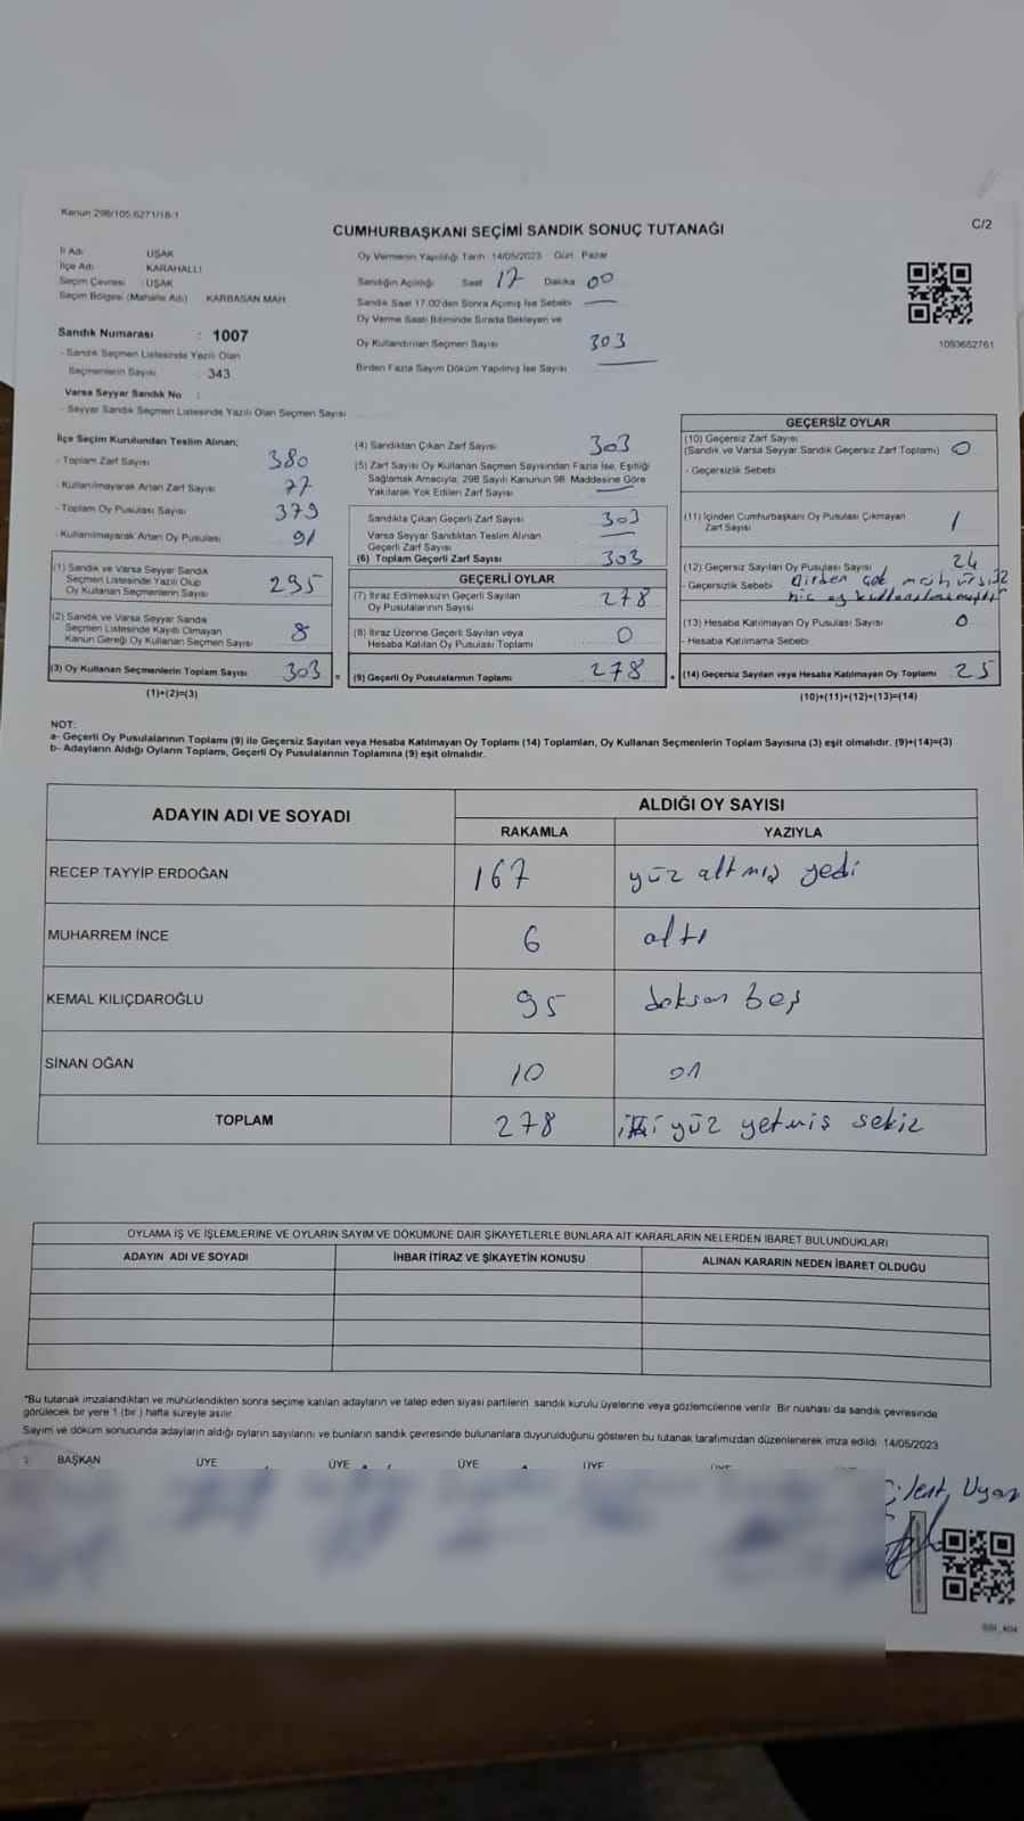 Kanun 298/105,6271/18-1
C/2
CUMHURBAŞKANI SEÇİMİ SANDIK SONUÇ TUTANAĞI
İl Adı : UŞAK
İlçe Adı : KARAHALLI
Seçim Çevresi : UŞAK
Seçim Bölgesi (Mahalle Adı) KARBASAN MAH
Sandık Numarası : 1007
- Sandık Seçmen Listesinde Yazılı Olan
Seçmenlerin Sayısı 343
Varsa Seyyar Sandık No :
- Seyyar Sandık Seçmen Listesinde Yazılı Olan Seçmen Sayısı
Oy Vermenin Yapıldığı Tarih 14/05/2023 Gün: Pazar
Sandığın Açılığı Saat 17 Dakika 00
Sandık Saat 17.00'den Sonra Açılmış İse Sebebi —
Oy Verme Saati Bitiminde Sırada Bekleyen ve
Oy Kullandırılan Seçmen Sayısı 303
Birden Fazla Sayım Döküm Yapılmış İse Sayısı —
1093652761
İlçe Seçim Kurulundan Teslim Alınan;
- Toplam Zarf Sayısı 380
- Kullanılmayarak Artan Zarf Sayısı 77
- Toplam Oy Pusulası Sayısı 379
- Kullanılmayarak Artan Oy Pusulası 91
(1) Sandık ve Varsa Seyyar Sandık
Seçmen Listesinde Yazılı Olup
Oy Kullanan Seçmenlerin Sayısı 295
(2) Sandık ve Varsa Seyyar Sandık
Seçmen Listesinde Kaydı Olmayan
Kanun Gereği Oy Kullanan Seçmen Sayısı 8
(3) Oy Kullanan Seçmenlerin Toplam Sayısı 303
(1)+(2)=(3)
(4) Sandıktan Çıkan Zarf Sayısı 303
(5) Zarf Sayısı Oy Kullanan Seçmen Sayısından Fazla İse, Eşitliği
Sağlamak Amacıyla, 298 Sayılı Kanunun 98. Maddesine Göre
Yakılarak Yok Edilen Zarf Sayısı —
Sandıkta Çıkan Geçerli Zarf Sayısı 303
Varsa Seyyar Sandıktan Teslim Alınan
Geçerli Zarf Sayısı —
(6) Toplam Geçerli Zarf Sayısı 303
GEÇERLİ OYLAR
(7) İtiraz Edilmeksizin Geçerli Sayılan
Oy Pusulalarının Sayısı 278
(8) İtiraz Üzerine Geçerli Sayılan veya
Hesaba Katılan Oy Pusulası Toplamı 0
(9) Geçerli Oy Pusulalarının Toplamı 278
GEÇERSİZ OYLAR
(10) Geçersiz Zarf Sayısı
(Sandık ve Varsa Seyyar Sandık Geçersiz Zarf Toplamı) 0
- Geçersizlik Sebebi
(11) İçinden Cumhurbaşkanı Oy Pusulası Çıkmayan
Zarf Sayısı 1
(12) Geçersiz Sayılan Oy Pusulası Sayısı 24
- Geçersizlik Sebebi Birden çok mühürsüz
hiç oy kullanılmamıştır
(13) Hesaba Katılmayan Oy Pusulası Sayısı 0
- Hesaba Katılmama Sebebi
(14) Geçersiz Sayılan veya Hesaba Katılmayan Oy Toplamı 25
(10)+(11)+(12)+(13)=(14)
NOT:
a- Geçerli Oy Pusulalarının Toplamı (9) ile Geçersiz Sayılan veya Hesaba Katılmayan Oy Toplamı (14) Toplamları, Oy Kullanan Seçmenlerin Toplam Sayısına (3) eşit olmalıdır. (9)+(14)=(3)
b- Adayların Aldığı Oyların Toplamı, Geçerli Oy Pusulalarının Toplamına (9) eşit olmalıdır.
ADAYIN ADI VE SOYADI
ALDIĞI OY SAYISI
RAKAMLA YAZIYLA
RECEP TAYYİP ERDOĞAN 167 yüz altmış yedi
MUHARREM İNCE 6 altı
KEMAL KILIÇDAROĞLU 95 doksan beş
SİNAN OĞAN 10 on
TOPLAM 278 iki yüz yetmiş sekiz
OYLAMA İŞ VE İŞLEMLERİNE VE OYLARIN SAYIM VE DÖKÜMÜNE DAİR ŞİKAYETLERLE BUNLARA AİT KARARLARIN NELERDEN İBARET BULUNDUKLARI
ADAYIN ADI VE SOYADI İHBAR İTİRAZ VE ŞİKAYETİN KONUSU ALINAN KARARIN NEDEN İBARET OLDUĞU
*Bu tutanak imzalandıktan ve mühürlendikten sonra seçime katılan adayların ve talep eden siyasi partilerin sandık kurulu üyelerine veya gözlemcilerine verilir. Bir nüshası da sandık çevresinde
görülecek bir yere 1 (bir) hafta süreyle asılır.
Sayım ve döküm sonucunda adayların aldığı oyların sayılarını ve bunların sandık çevresinde bulunanlara duyurulduğunu gösteren bu tutanak tarafımızdan düzenlenerek imza edildi. 14/05/2023
BAŞKAN ÜYE ÜYE ÜYE ÜYE